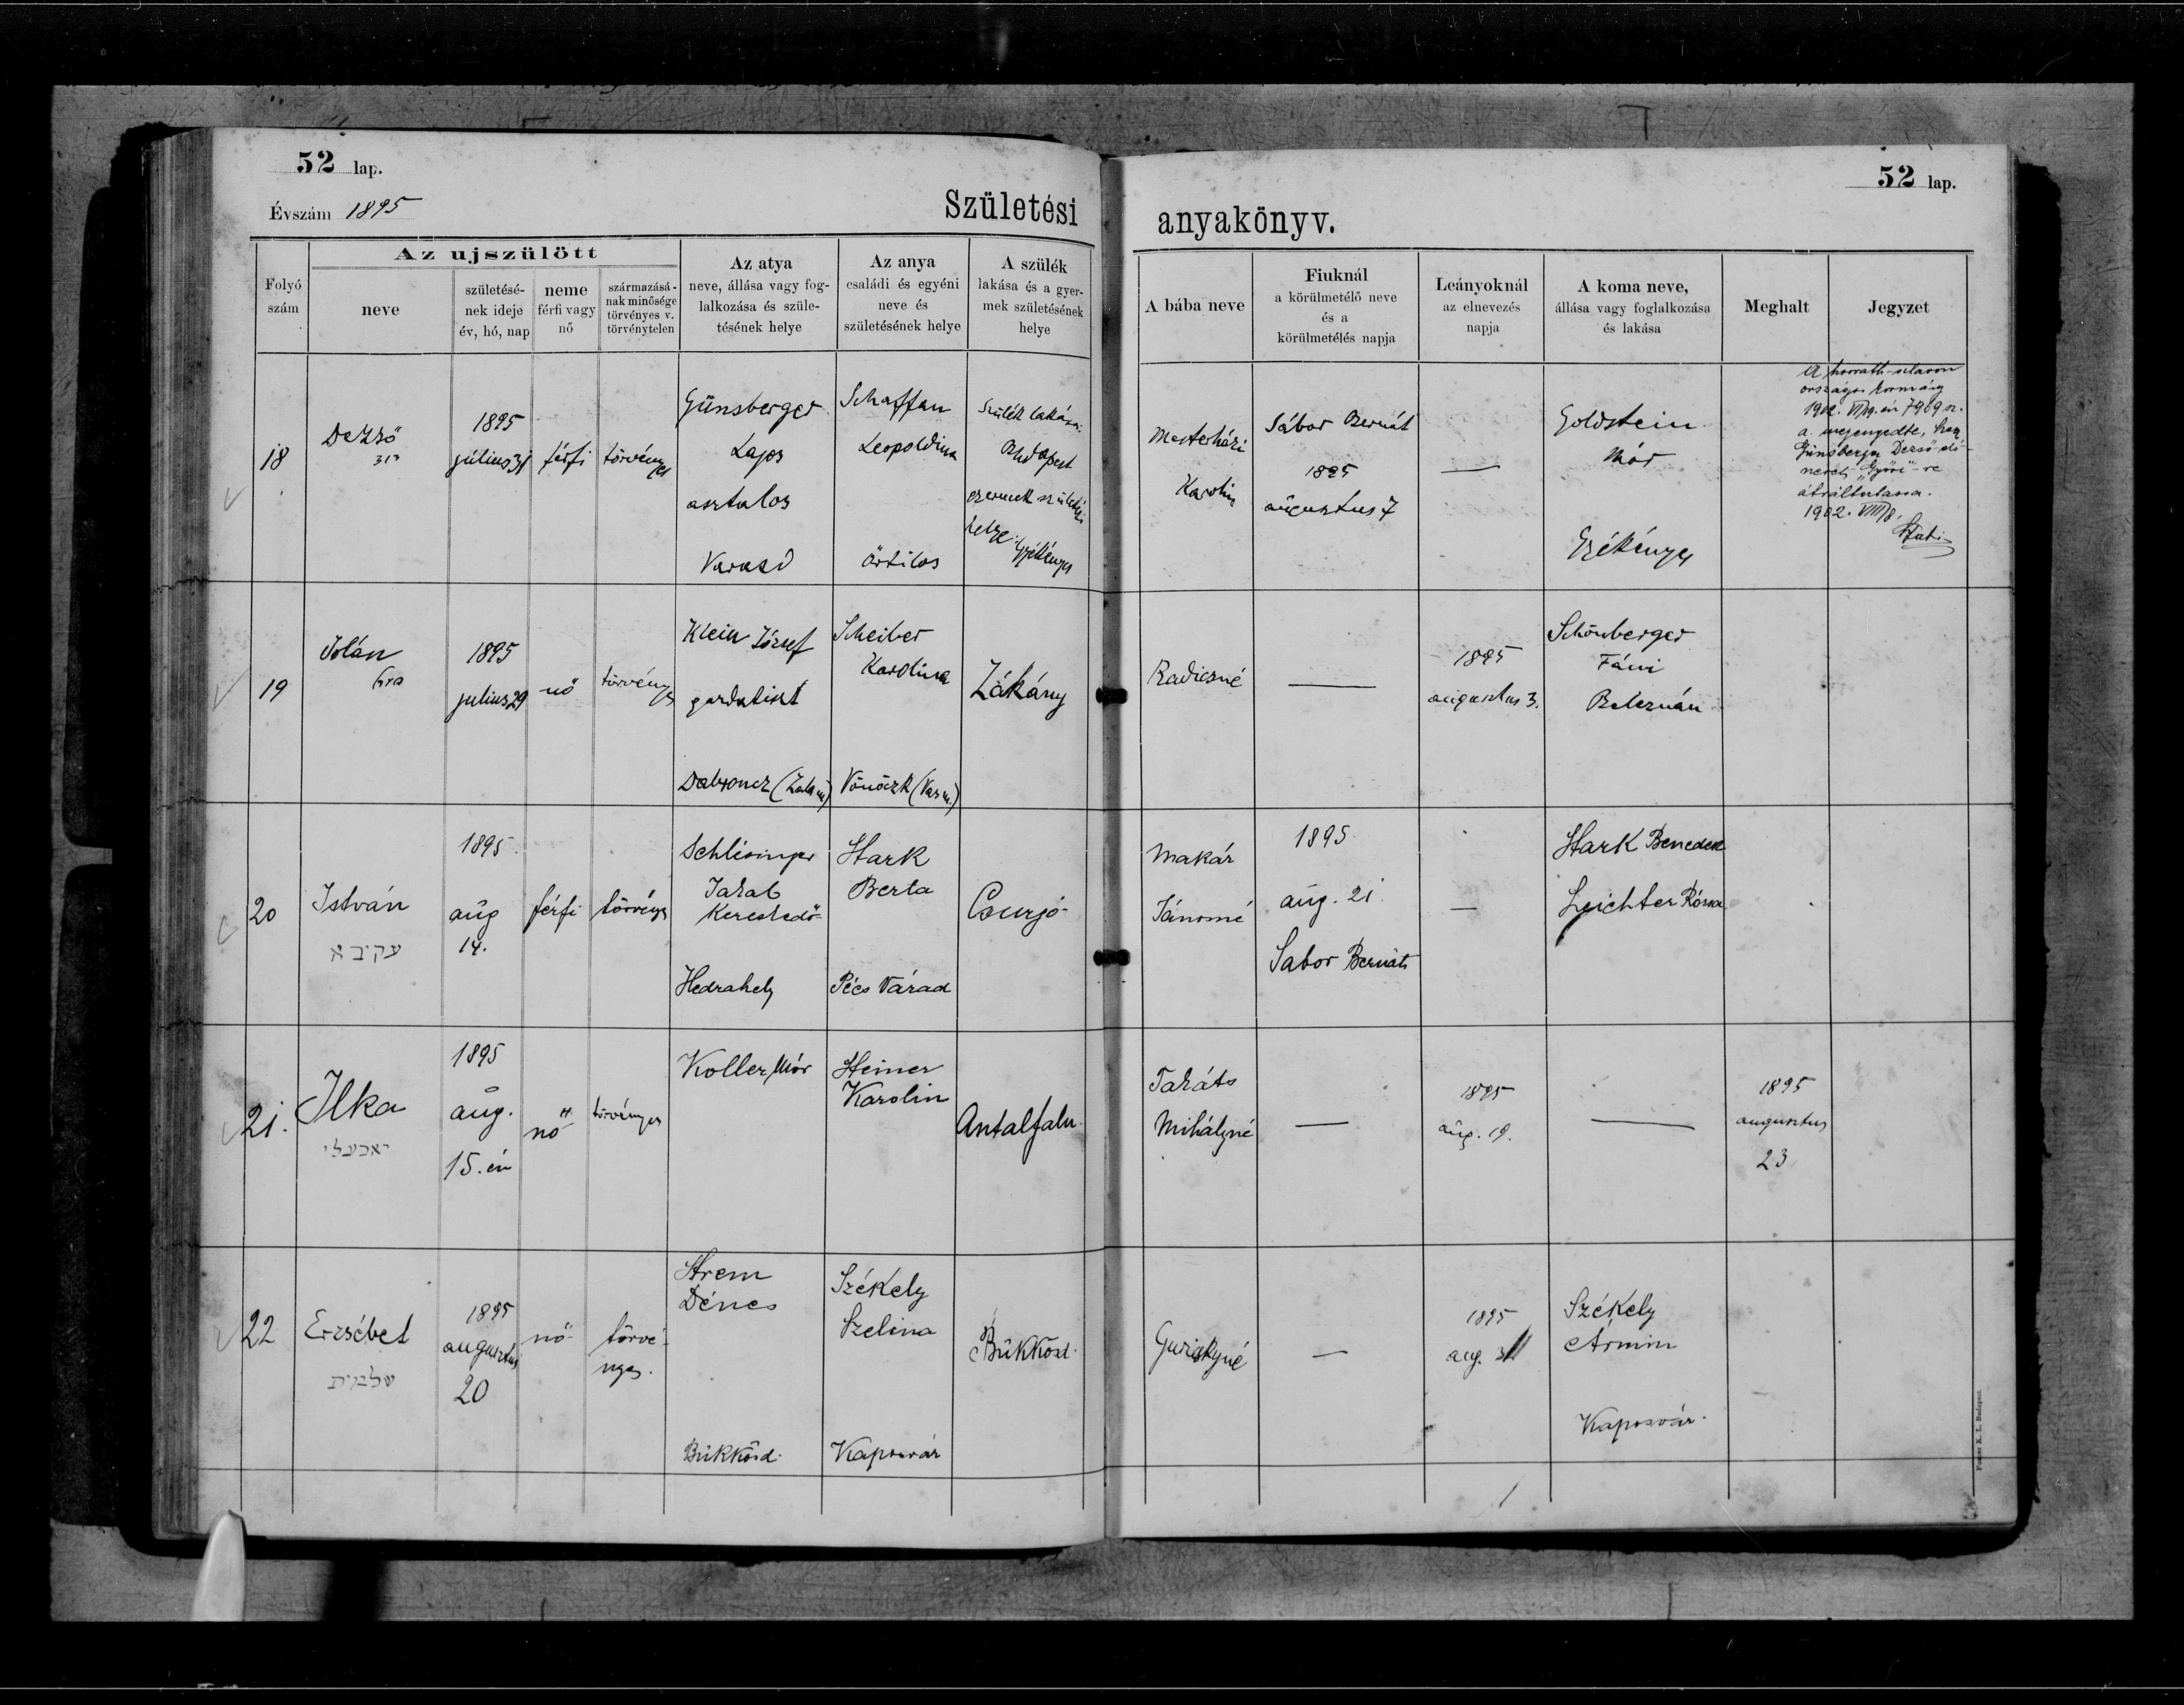 52 lap.
52 lap.
Évszám 1895
Születési
anyakönyv.
Az ujszülött
Folyó szám
neve
születésé-
nek ideje
év, hó, nap
neme
férfi vagy
nő
származásá-
nak minősége
törvényes v.
törvénytelen
Az atya
neve, állása vagy fog-
lalkozása és szüle-
tésének helye
Az anya
családi és egyéni
neve és
születésének helye
A szülék
lakása és a gyer-
mek születésének
helye
A bába neve
Fiuknál
a körülmetélő neve
és a
körülmetélés napja
Leányoknál
az elnevezés
napja
A koma neve,
állása vagy foglalkozása
és lakása
Meghalt
Jegyzet
18
Dezső
1895
július 31
férfi
törvényes
Günsberger
Lajos
asztalos
Varasd
Schaffan
Leopoldina
Örtilos
Szülék lakása:
Budapest
gyermek születési
helye: Gyékényes
Mesterházi
Karolin
Sábor Bernát
1895
augusztus 7
—
Goldstein
Mór
Gyékényes
A horváth-slavon
országos kormány
1902. 7969 sz.
a. megengedte, hogy
Günsberger Dezső
nevét "Győri"-re
átváltoztassa.
1902. VIII/8.
19
Jolán
1895
julius 29
nő
törvényes
Klein József
gazdatiszt
Dabroncz (Zala m)
Scheiber
Karolina
Vönöczk (Vas m.)
Zákány
Radicsné
—
1895
augusztus 3.
Schönberger
Fáni
Beleznán
20
István
עקיבא
1895
aug
14.
férfi
törvényes
Schlésinger
Jakab
Kereskedő
Hedrahely
Stark
Berta
Pécs Várad
Csurgó
Makár
Jánosné
1895
aug. 21.
Sabor Bernáth
—
Stark Benedek
Leichter Rózsa
21.
Ilka
1895
aug.
15. én
nő
törvényes
Koller Mór
Steiner
Karolin
Antalfalu
Takáts
Mihályné
—
1895
aug. 19.
—
1895
augusztus
23
22
Erzsébet
שלומית
1895
augusztus
20
nő
törvé-
nyes.
Strem
Dénes
Bükkösd
Székely
Szelina
Kaposvár
Bükkösd
—
1895
aug. 31
Székely
Ármin
Kaposvár